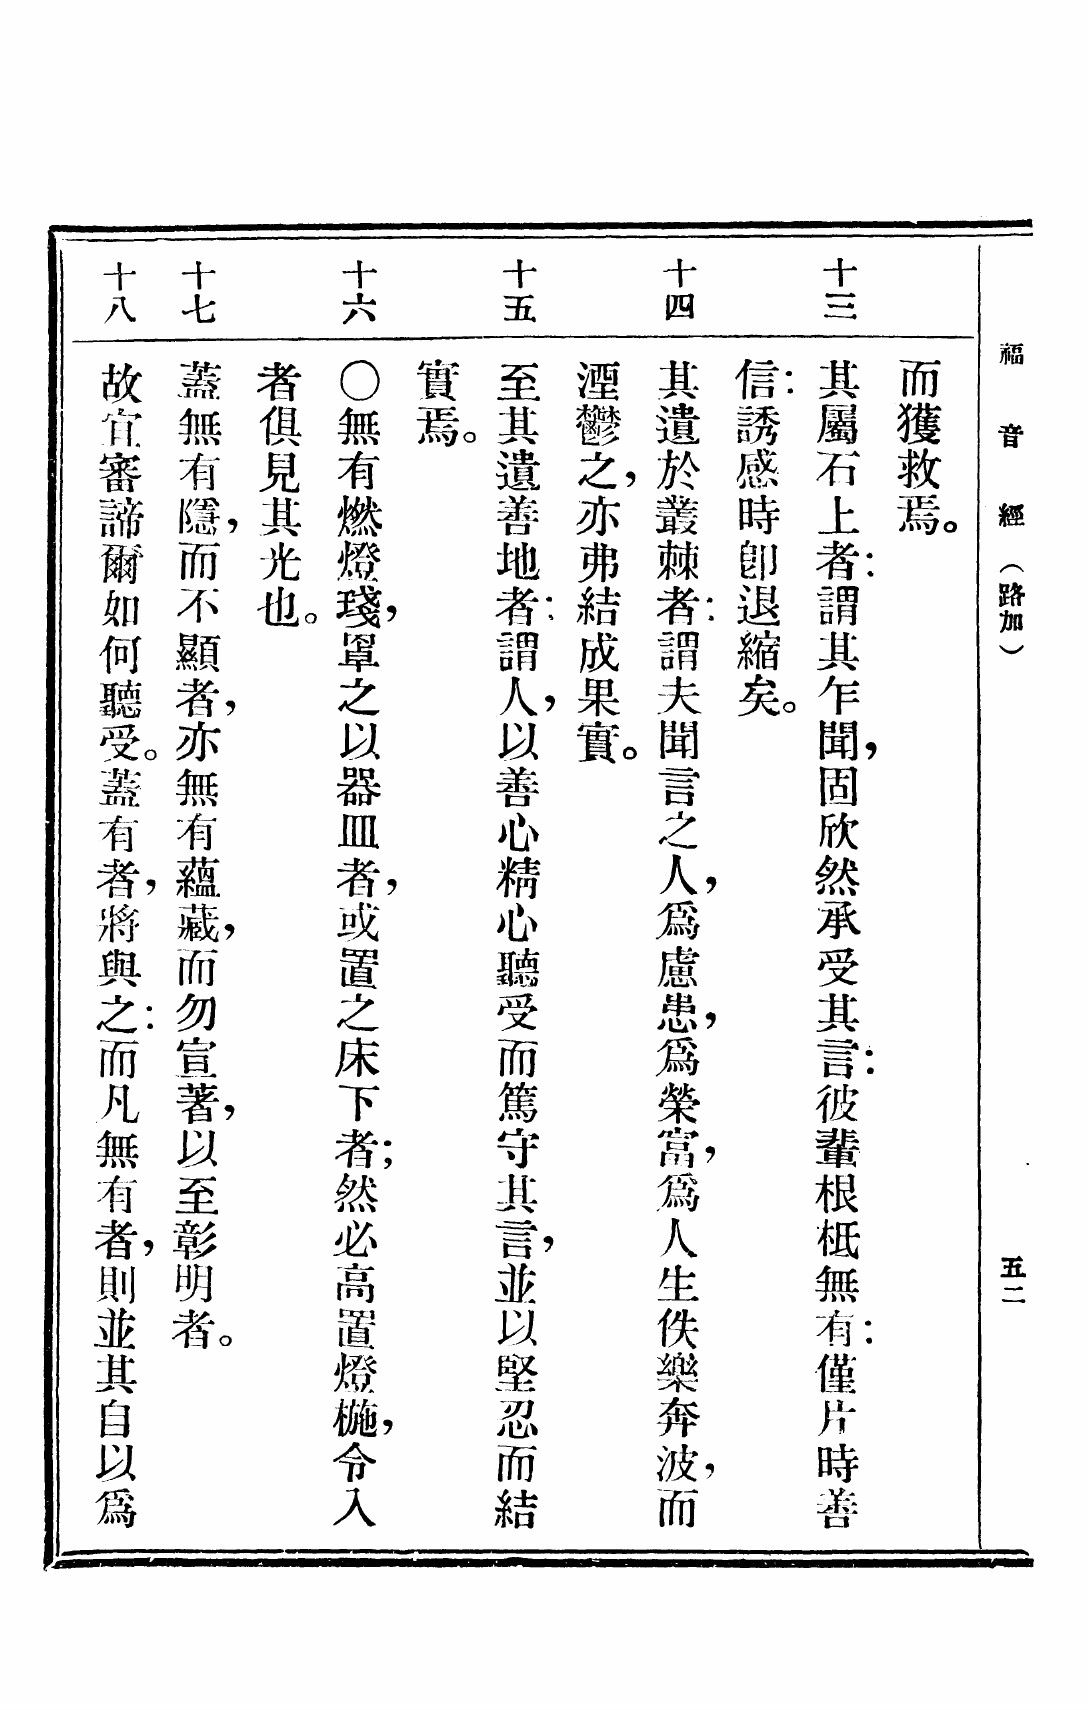 福音經（路加） 五二
而獲救焉。
十三 其屬石上者：謂其乍聞，固欣然承受其言：彼輩根柢無有：僅片時善
信：誘感時卽退縮矣。
十四 其遺於叢棘者：謂夫聞言之人，爲慮患，爲榮富，爲人生佚樂奔波，而
湮鬱之，亦弗結成果實。
十五 至其遺善地者：謂人，以善心精心聽受而篤守其言，並以堅忍而結
實焉。
十六 〇無有燃燈琖，罩之以器皿者，或置之床下者；然必高置燈椸，令入
者俱見其光也。
十七 蓋無有隱，而不顯者，亦無有蘊藏，而勿宣著，以至彰明者。
十八 故宜審諦爾如何聽受。蓋有者，將與之：而凡無有者，則並其自以爲